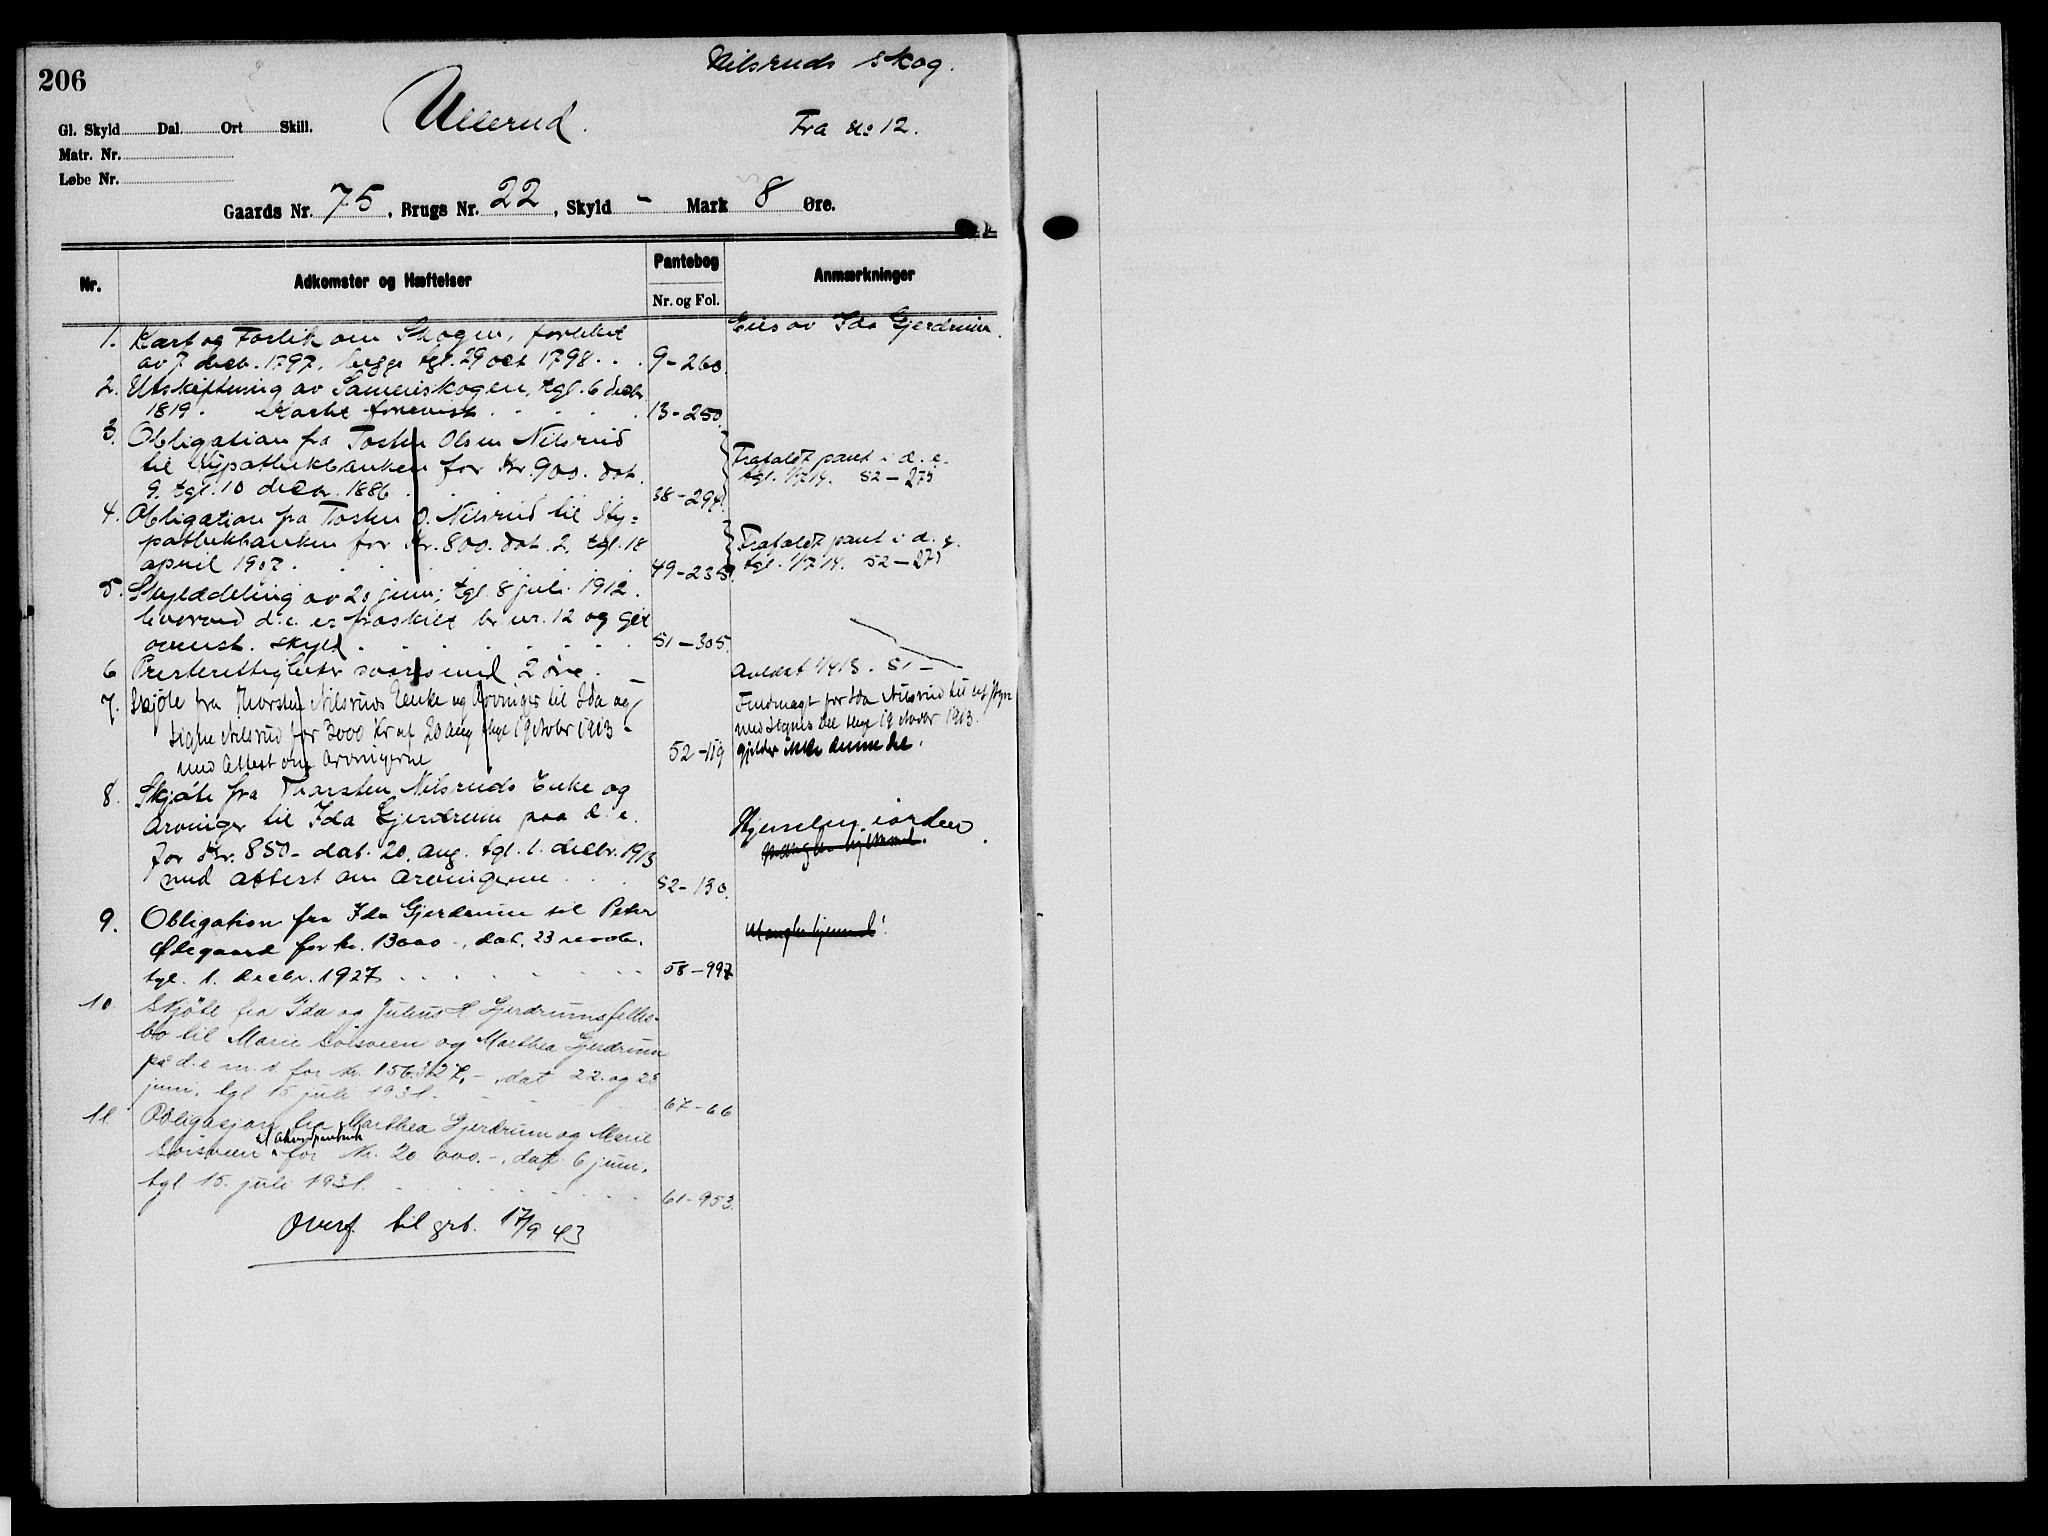 206
Nilsruds skog.
Ullerud.
Fra no 12.
Gl. Skyld Dal. Ort Skill.
Matr. Nr.
Løbe Nr.
Gaards Nr. 75, Brugs Nr. 22, Skyld - Mark 8 Øre.
Nr. Adkomster og Hæftelser Pantebog Nr. og Fol. Anmærkninger
Eies av Ida Gjerdrum.
1. Kart og Forlik om Skogen, forliket
av 7 decb. 1797, begge tgl. 29 oct 1798. 9-260.
2. Utskiftning av Sameieskogen, tgl. 6 decbr
1819. Karte forevist. 13-250.
3. Obligation fra Tosten Olsen Nilsrud
til Hypothekbanken for Kr. 900. dat.
9. tgl. 10 decbr. 1886. 38-294.
Frafaldt pant i d. e.
tgl. 1/7 14. 52-275
4. Obligation fra Tosten O. Nilsrud til Hy=
pothekbanken for Kr. 800. dat. 2. tgl. 18
april 1907. 49-235.
Frafaldt pant i d. e.
tgl. 1/7 14. 52-275
5. Skylddeling av 20 juni, tgl. 8 juli 1912.
hvorved d.e. er fraskilt br. nr. 12 og git
ovenst. skyld. 51-305.
6 Presterettigheter svares med 2 øre.
Avløst 1/4 13. 51-
7. Skjøte fra Thorsten Nilsruds Enke og Arvinger til Ida og
Signe Nilsrud for 3000 Kr af 20 Aug thgl 1 October 1913 -
med Attest om Arvingerne 52-119
Fuldmagt for Ida Nilsrud til at styre
med Signes Del thgl 1 October 1913.
gjelder ikke denne del.
8. Skjøte fra Thorsten Nilsruds Enke og
Arvinger til Ida Gjerdrum paa d. e.
for Kr. 850- dat. 20. aug. tgl. 1. decbr. 1913
med attest om arvingerne 52-130.
Hjemmelen i orden
mangler hjemmel.
9. Obligation fra Ida Gjerdrum til Peter
Ødegaard for kr. 13000-, dat. 23 novb.
tgl. 1. decbr. 1927 58-997
Mangler hjemmel!
10. Skjøte fra Ida og Julius H Gjerdrums felles-
bo til Marie Svisveen og Marthea Gjerdrum
på d.e m. v for kr. 15632 7,- , dat 22. og 23
juni, tgl 15 juli 1931. 67-66
11 Obligasjon fra Marthea Gjerdrum og Marie
Svisveen for Kr. 20 000.-, dat. 6 juni,
tgl 15. juli 1931. 61-953.
Overf. til grb. 17/9 43